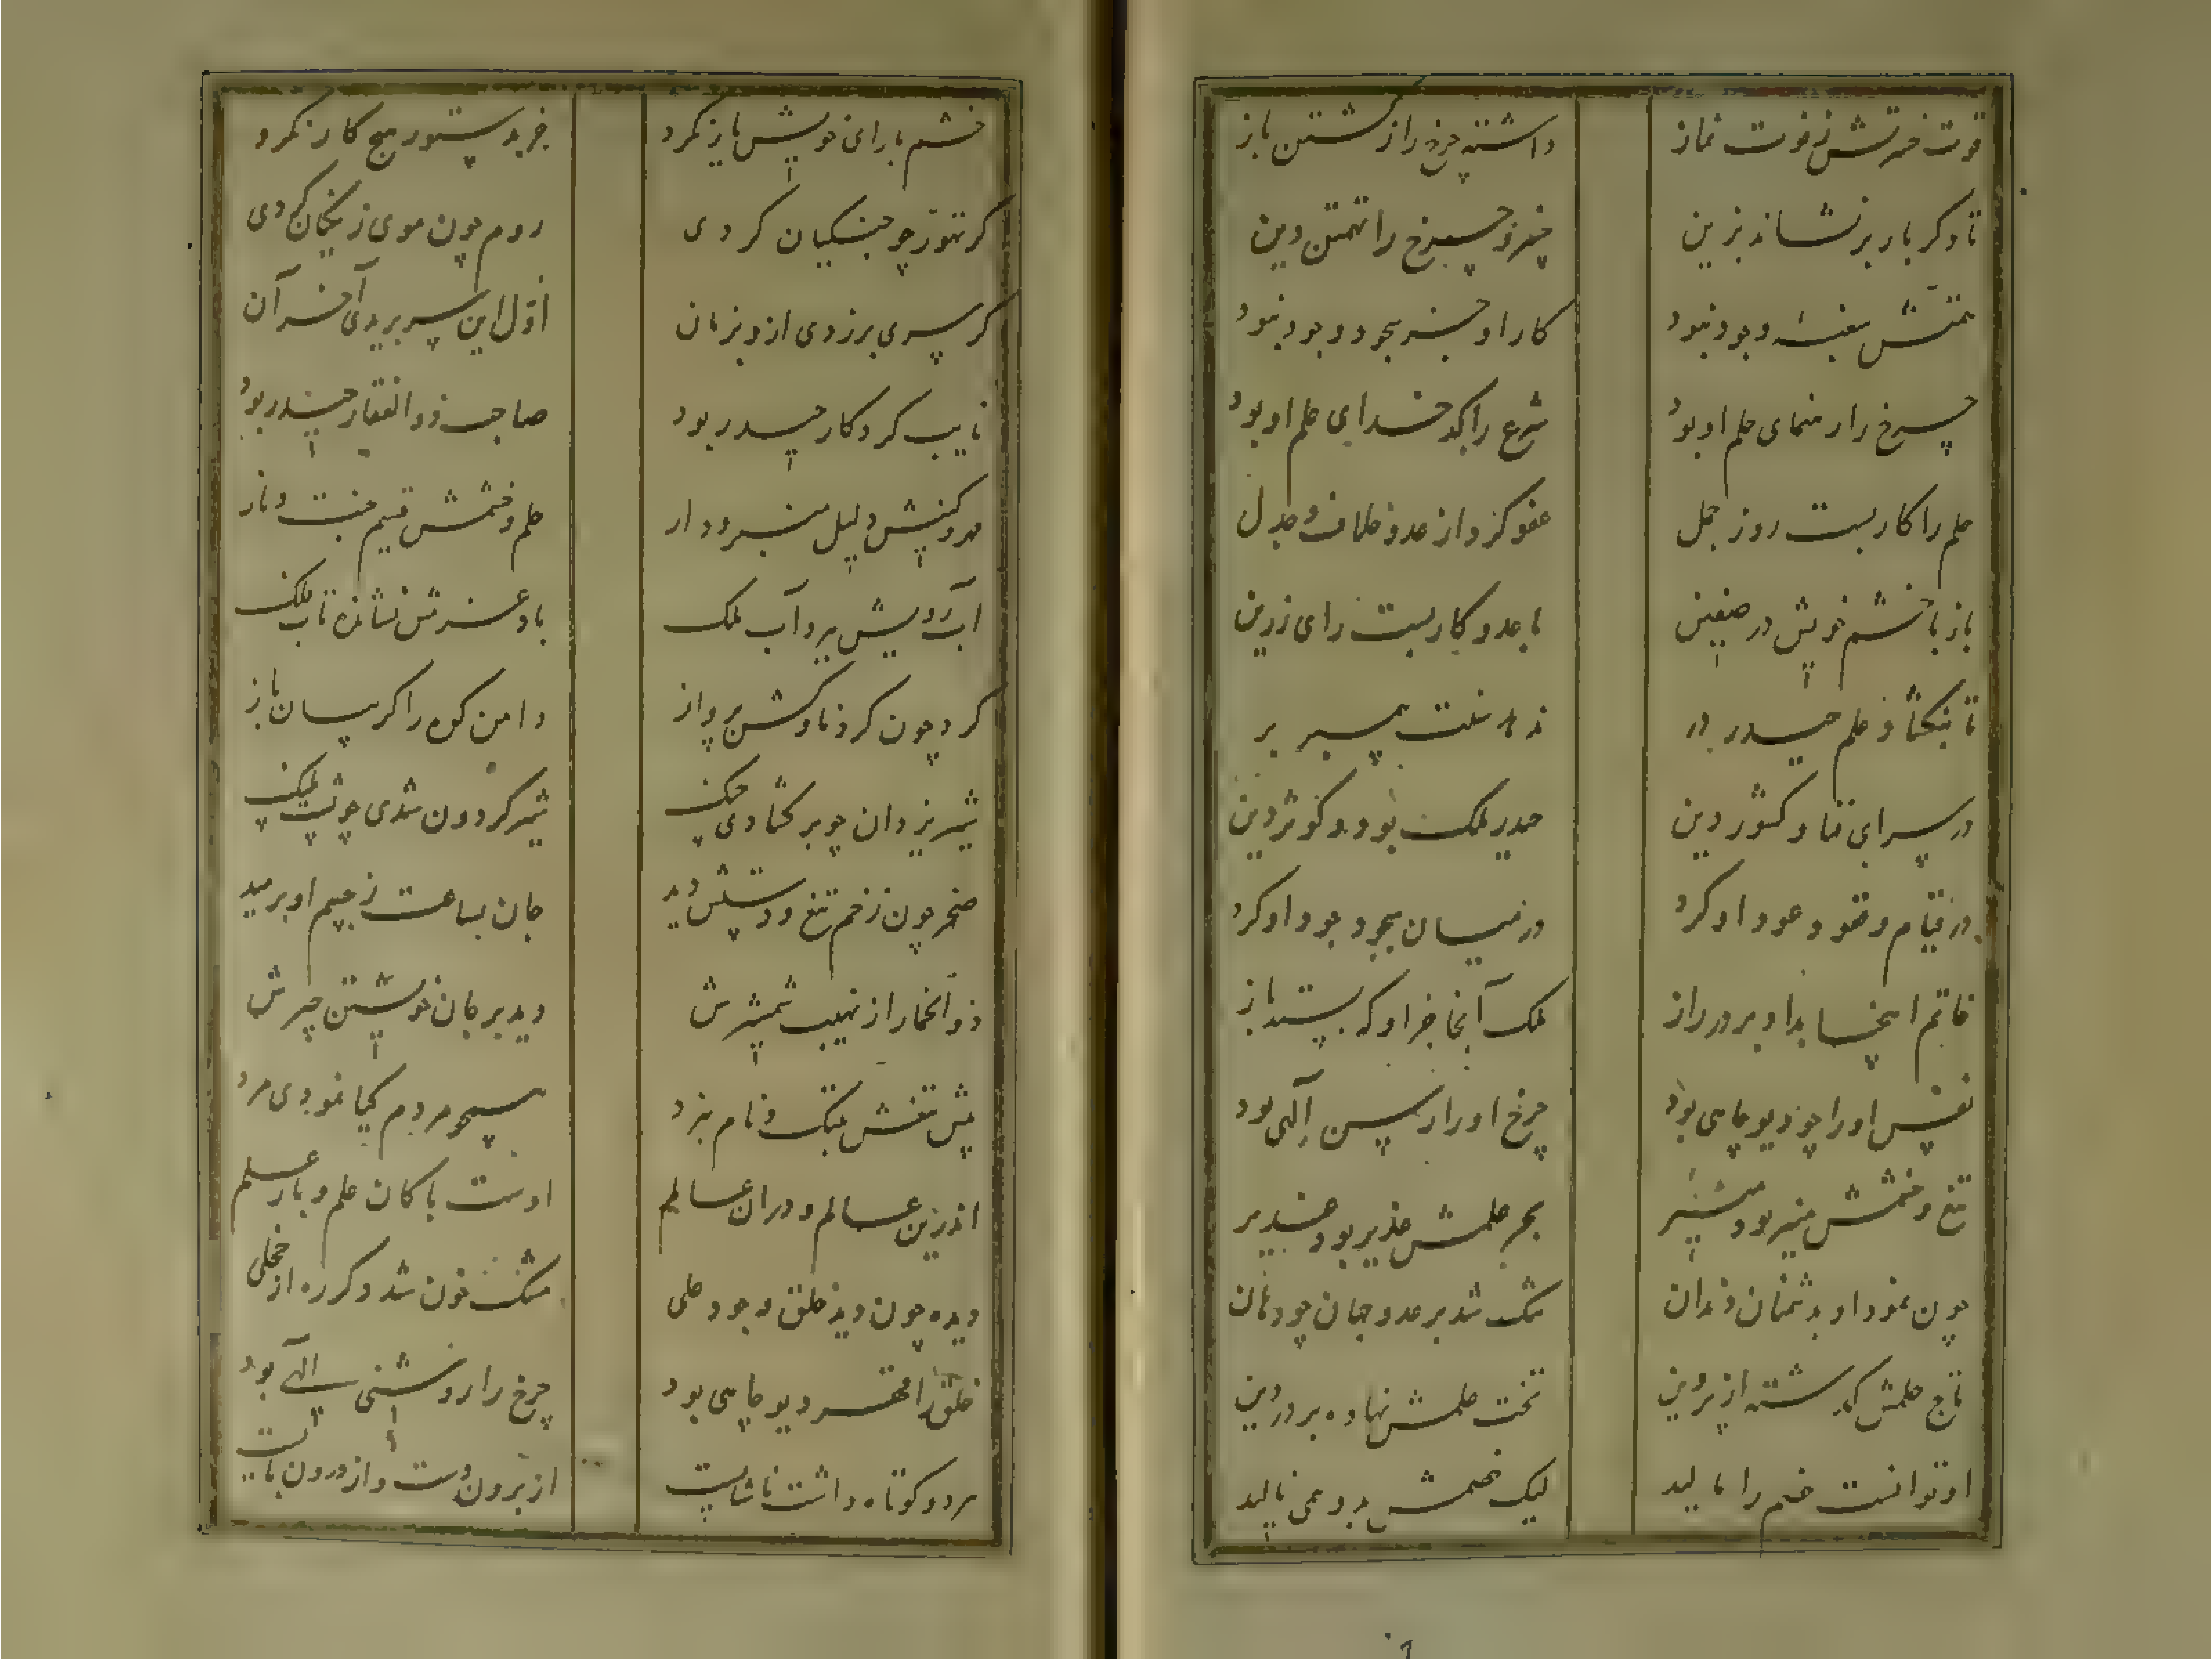 قوت حسرتش ز فوت نماز
داشته چرخ را ز گشتن باز
تا دگر باره بر نشاند بزین
خسرو چرخ را تهمتن دین
همتش بود و جود نبود
کار او جز سجود و جود نبود
چرخ را رهنمای حلم او بود
شرع را کدخدای علم او بود
حلم را کار بست روز جمل
عفو کرد از عدو خلاف و جدل
باز با خشم خویش در صفین
با عدو کار بست رای زرین
تا بنگشاد علم حیدر در
ندهد سنت پیمبر بر
در سرای فنا و کشور دین
حیدر ملک بود و کوثر دین
در قیام و قعود عود او کرد
در میان سجود جود او کرد
خاتم اینجا بداد بر در راز
ملک آنجا خرید او که ستد باز
نفس او را چو دیو چاهی بود
چرخ او را رسن الهی بود
تیغ و خشمش منیر بود
بحر علمش غدیر بود
چون نمود او به دشمنان دندان
تنگ شد بر عدو جهان چو دهان
تاج حلمش گذشته از پروین
تخت علمش نهاده بر در دین
او توانست خصم را مالید
لیک خصمش بدو همی نالید
خشم با رای خویش یار نکرد
جز به دستور هیچ کار نکرد
گر تهور چو جنگیان کردی
روم چون موی زنگیان کردی
گر سری برزدی ازو بزمان
اول این سر بریدی آخر آن
نایب کردگار حیدر بود
صاحب ذوالفقار حیدر بود
مهر و کینش دلیل منبر و دار
حلم و خشمش قسیم جنت و نار
آب رویش ببرد آب ملک
باد عزمش نشانده تاب فلک
کرد چون کرد ناوکش پرواز
دامن کوه را گریبان باز
شیر یزدان چو برگشادی چنگ
شیر گردون شدی چو پشت پلنگ
صخر چون زخم تیغ و دستش دید
جان بساعت ز جسم او برمید
ذوالخمار از نهیب شمشیرش
دید بر جان خویشتن چیرش
پیش تیغش بننگ و نام نبرد
همچو مردم گیا نمودی مرد
اندرین عالم و دران عالم
اوست با کان علم و بار علم
دیده چون دید خلق و جود علی
مشک خون شد دگر ره از خجلی
خلق را قعر دیو چاهی بود
چرخ را روشنی الهی بود
مرد و کوتاه داشت ناشایست
از برون دست و از درون بایست